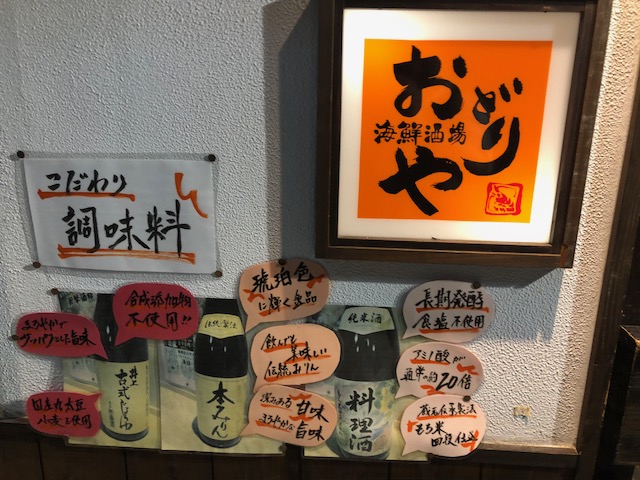 おどりや
海鮮酒場
こだわり
調味料
合成添加物
不使用!!
まろやかで
旨味
国産丸大豆
小麦使用
井上
古式じょうゆ
琥珀色
に輝く逸品
飲んでも
美味しい
伝統みりん
深みある甘味
まろやかな旨味
伝統製法
本みりん
純米酒
料理酒
長期発酵
食塩不使用
アミノ酸が
通常の約20倍
蔵元伝承製法
もち米
四段仕込